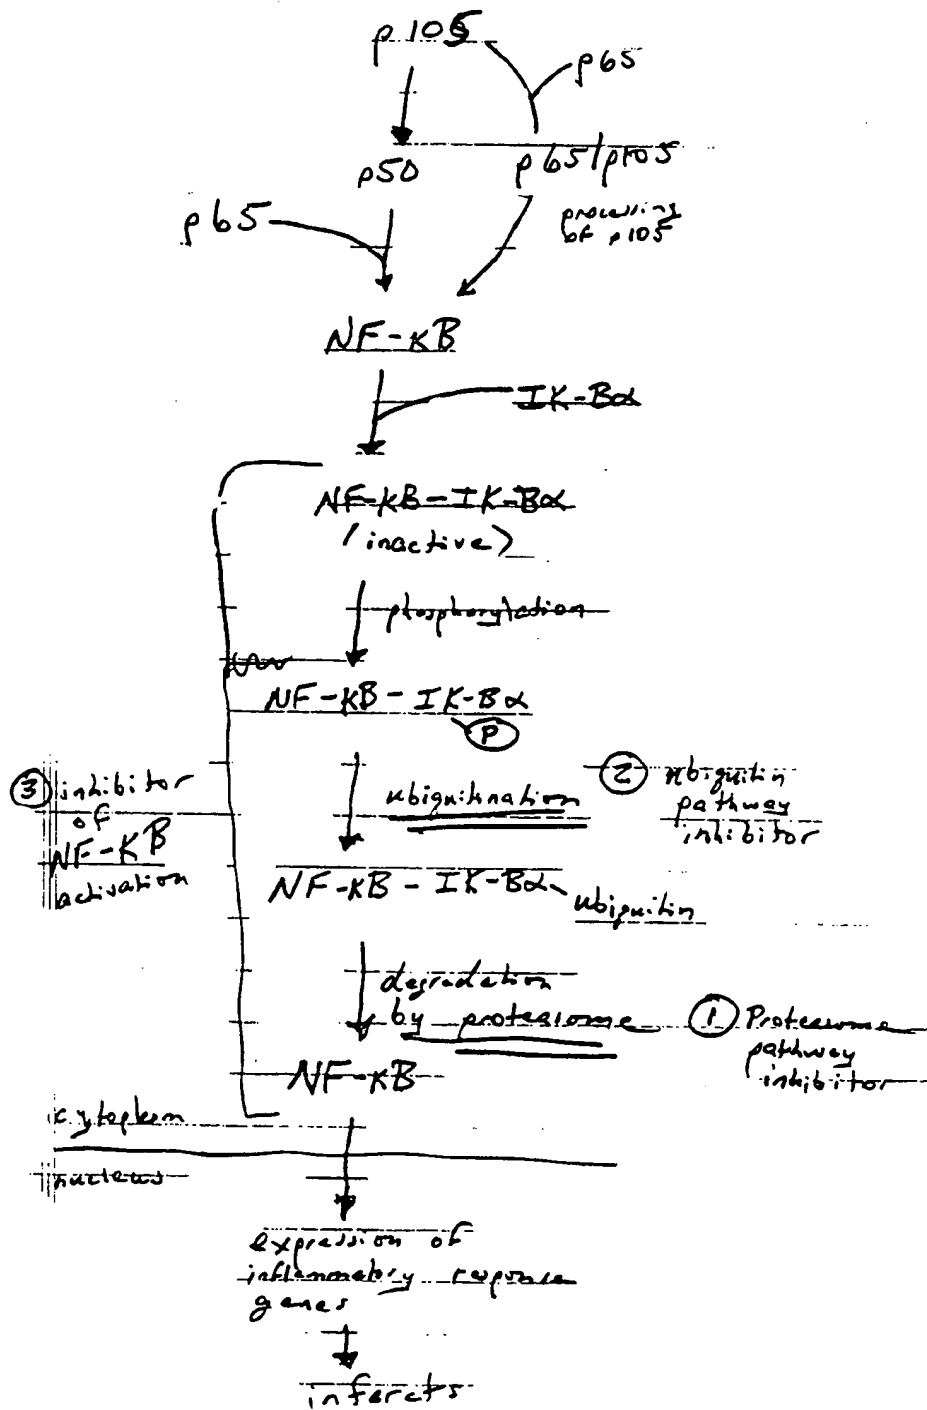 p105
p65
p50
p65/p105
p65
processing
of p105
NF-κB
IK-Bα
NF-κB-IK-Bα
(inactive)
phosphorylation
NF-κB-IK-Bα
P
ubiquitination
② ubiquitin
pathway
inhibitor
③ inhibitor
of
NF-κB
activation
NF-κB-IK-Bα
ubiquitin
degradation
by proteasome
① Proteasome
pathway
inhibitor
NF-κB
cytoplasm
nucleus
expression of
inflammatory response
genes
infarcts